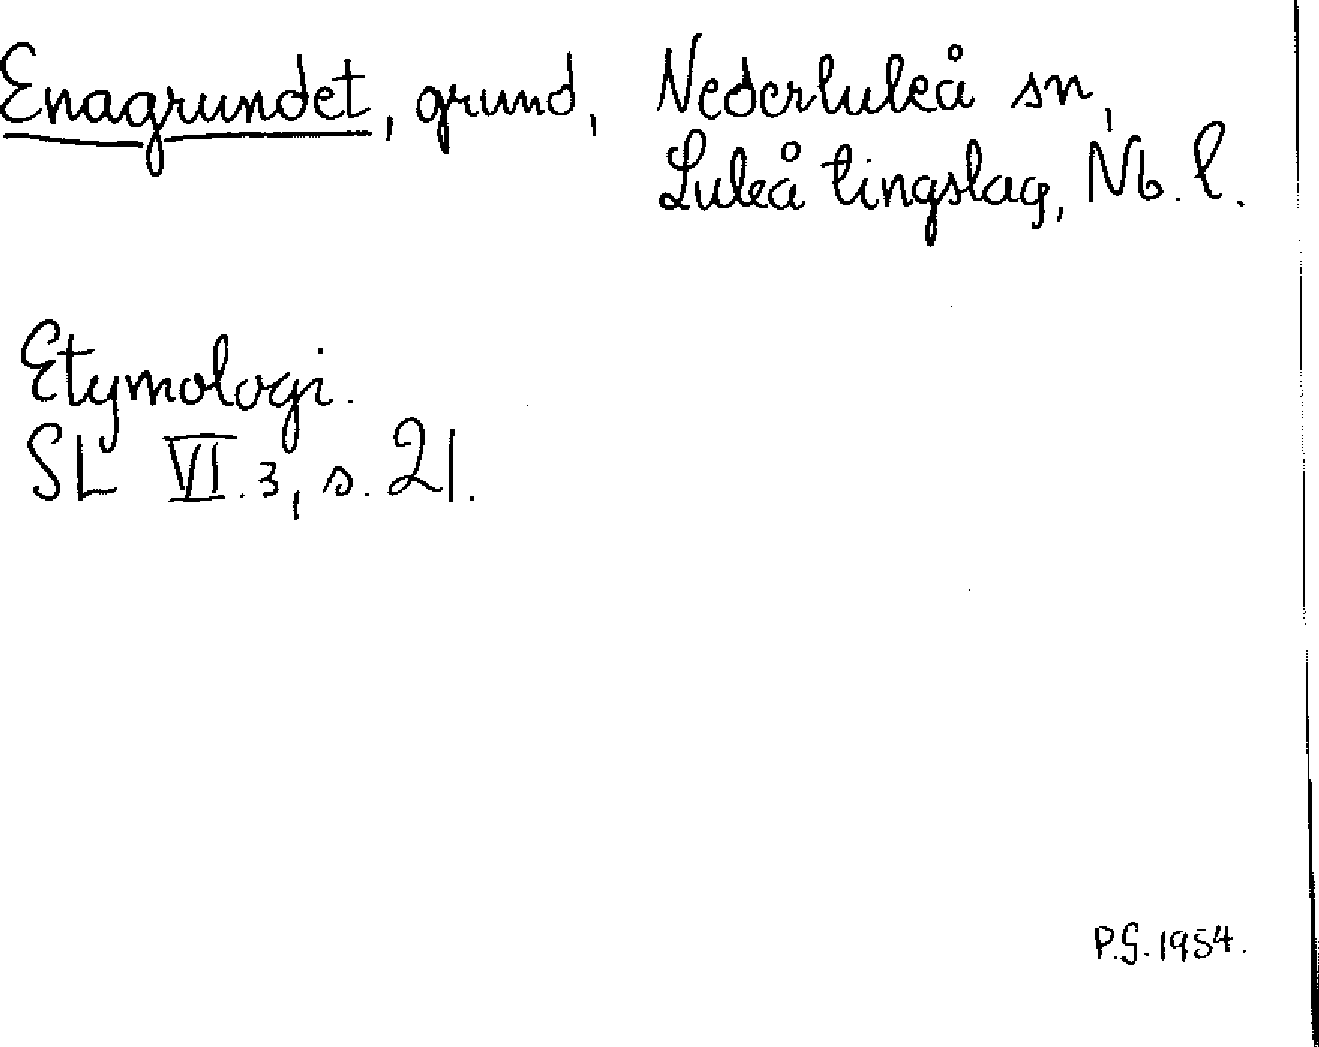 Enagrundet, grund, Nederluleå sn,
Luleå tingslag, Nb. l.
Etymologi.
SL VI.3, s. 21.
P.G. 1954.